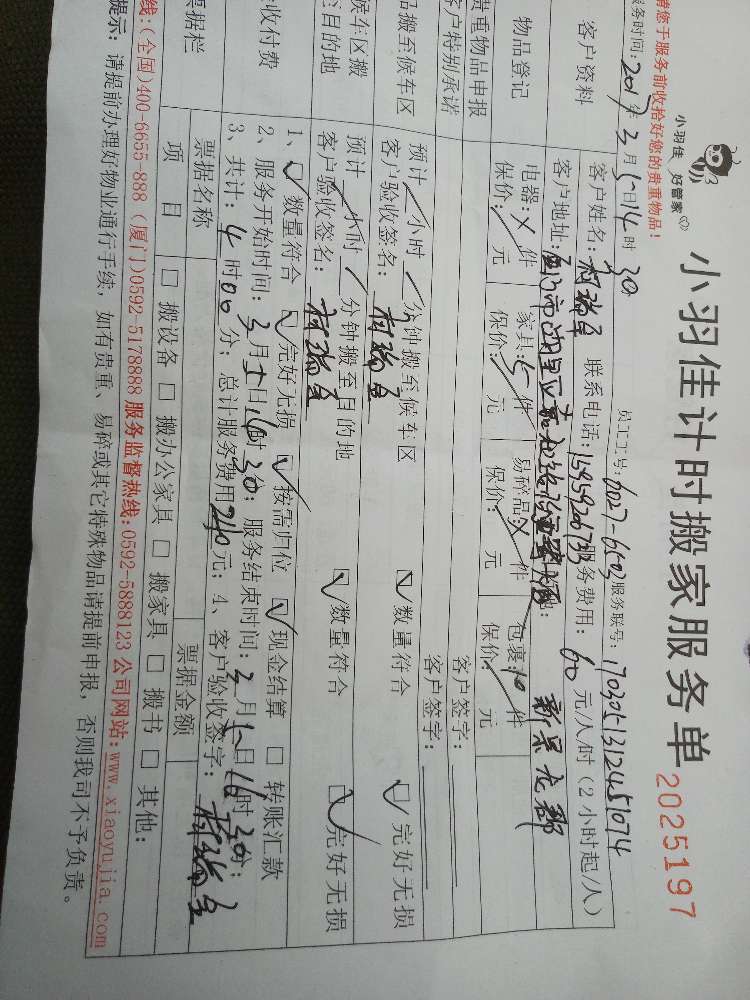 小羽佳 好管家
小羽佳计时搬家服务单
2025197
请您于服务前收拾好您的贵重物品！
员工工号：6027-6503 服务联号：170305131245 1074
服务时间：2017年3月5日14时30
客户资料
客户姓名：柯瑞星 联系电话：服务费用：60元/人/时（2小时起/人）
客户地址：
新景龙郡
物品登记
电器：X件 家具：5件 易碎品：X件 包裹：10件
保价：/元 保价：/元 保价：/元 保价：/元
贵重物品申报
客户签字：
客户特别承诺
客户签字：
品搬至候车区
预计/小时/分钟搬至候车区 ☑数量符合 ☑完好无损
客户验收签名：柯瑞星
候车区搬至目的地
预计/小时/分钟搬至目的地 ☑数量符合 ☑完好无损
客户验收签名：柯瑞星
验收付费
1、☑数量符合 ☑完好无损 ☑按需归位 ☑现金结算 □转账汇款
2、服务开始时间：3月5日14时30；服务结束时间：3月5日16时30分；
3、共计：4时00分；总计服务费用240元；4、客户验收签字：柯瑞星
票据栏
票据名称 票据金额
项目 □搬设备 □搬办公家具 □搬家具 □搬书 □其他：
线：(全国)400-6655-888 (厦门)0592-5178888 服务监督热线：0592-5888123 公司网站：www.xiaoyujia.com
提示：请提前办理好物业通行手续，如有贵重、易碎或其它特殊物品请提前申报，否则我司不予负责。